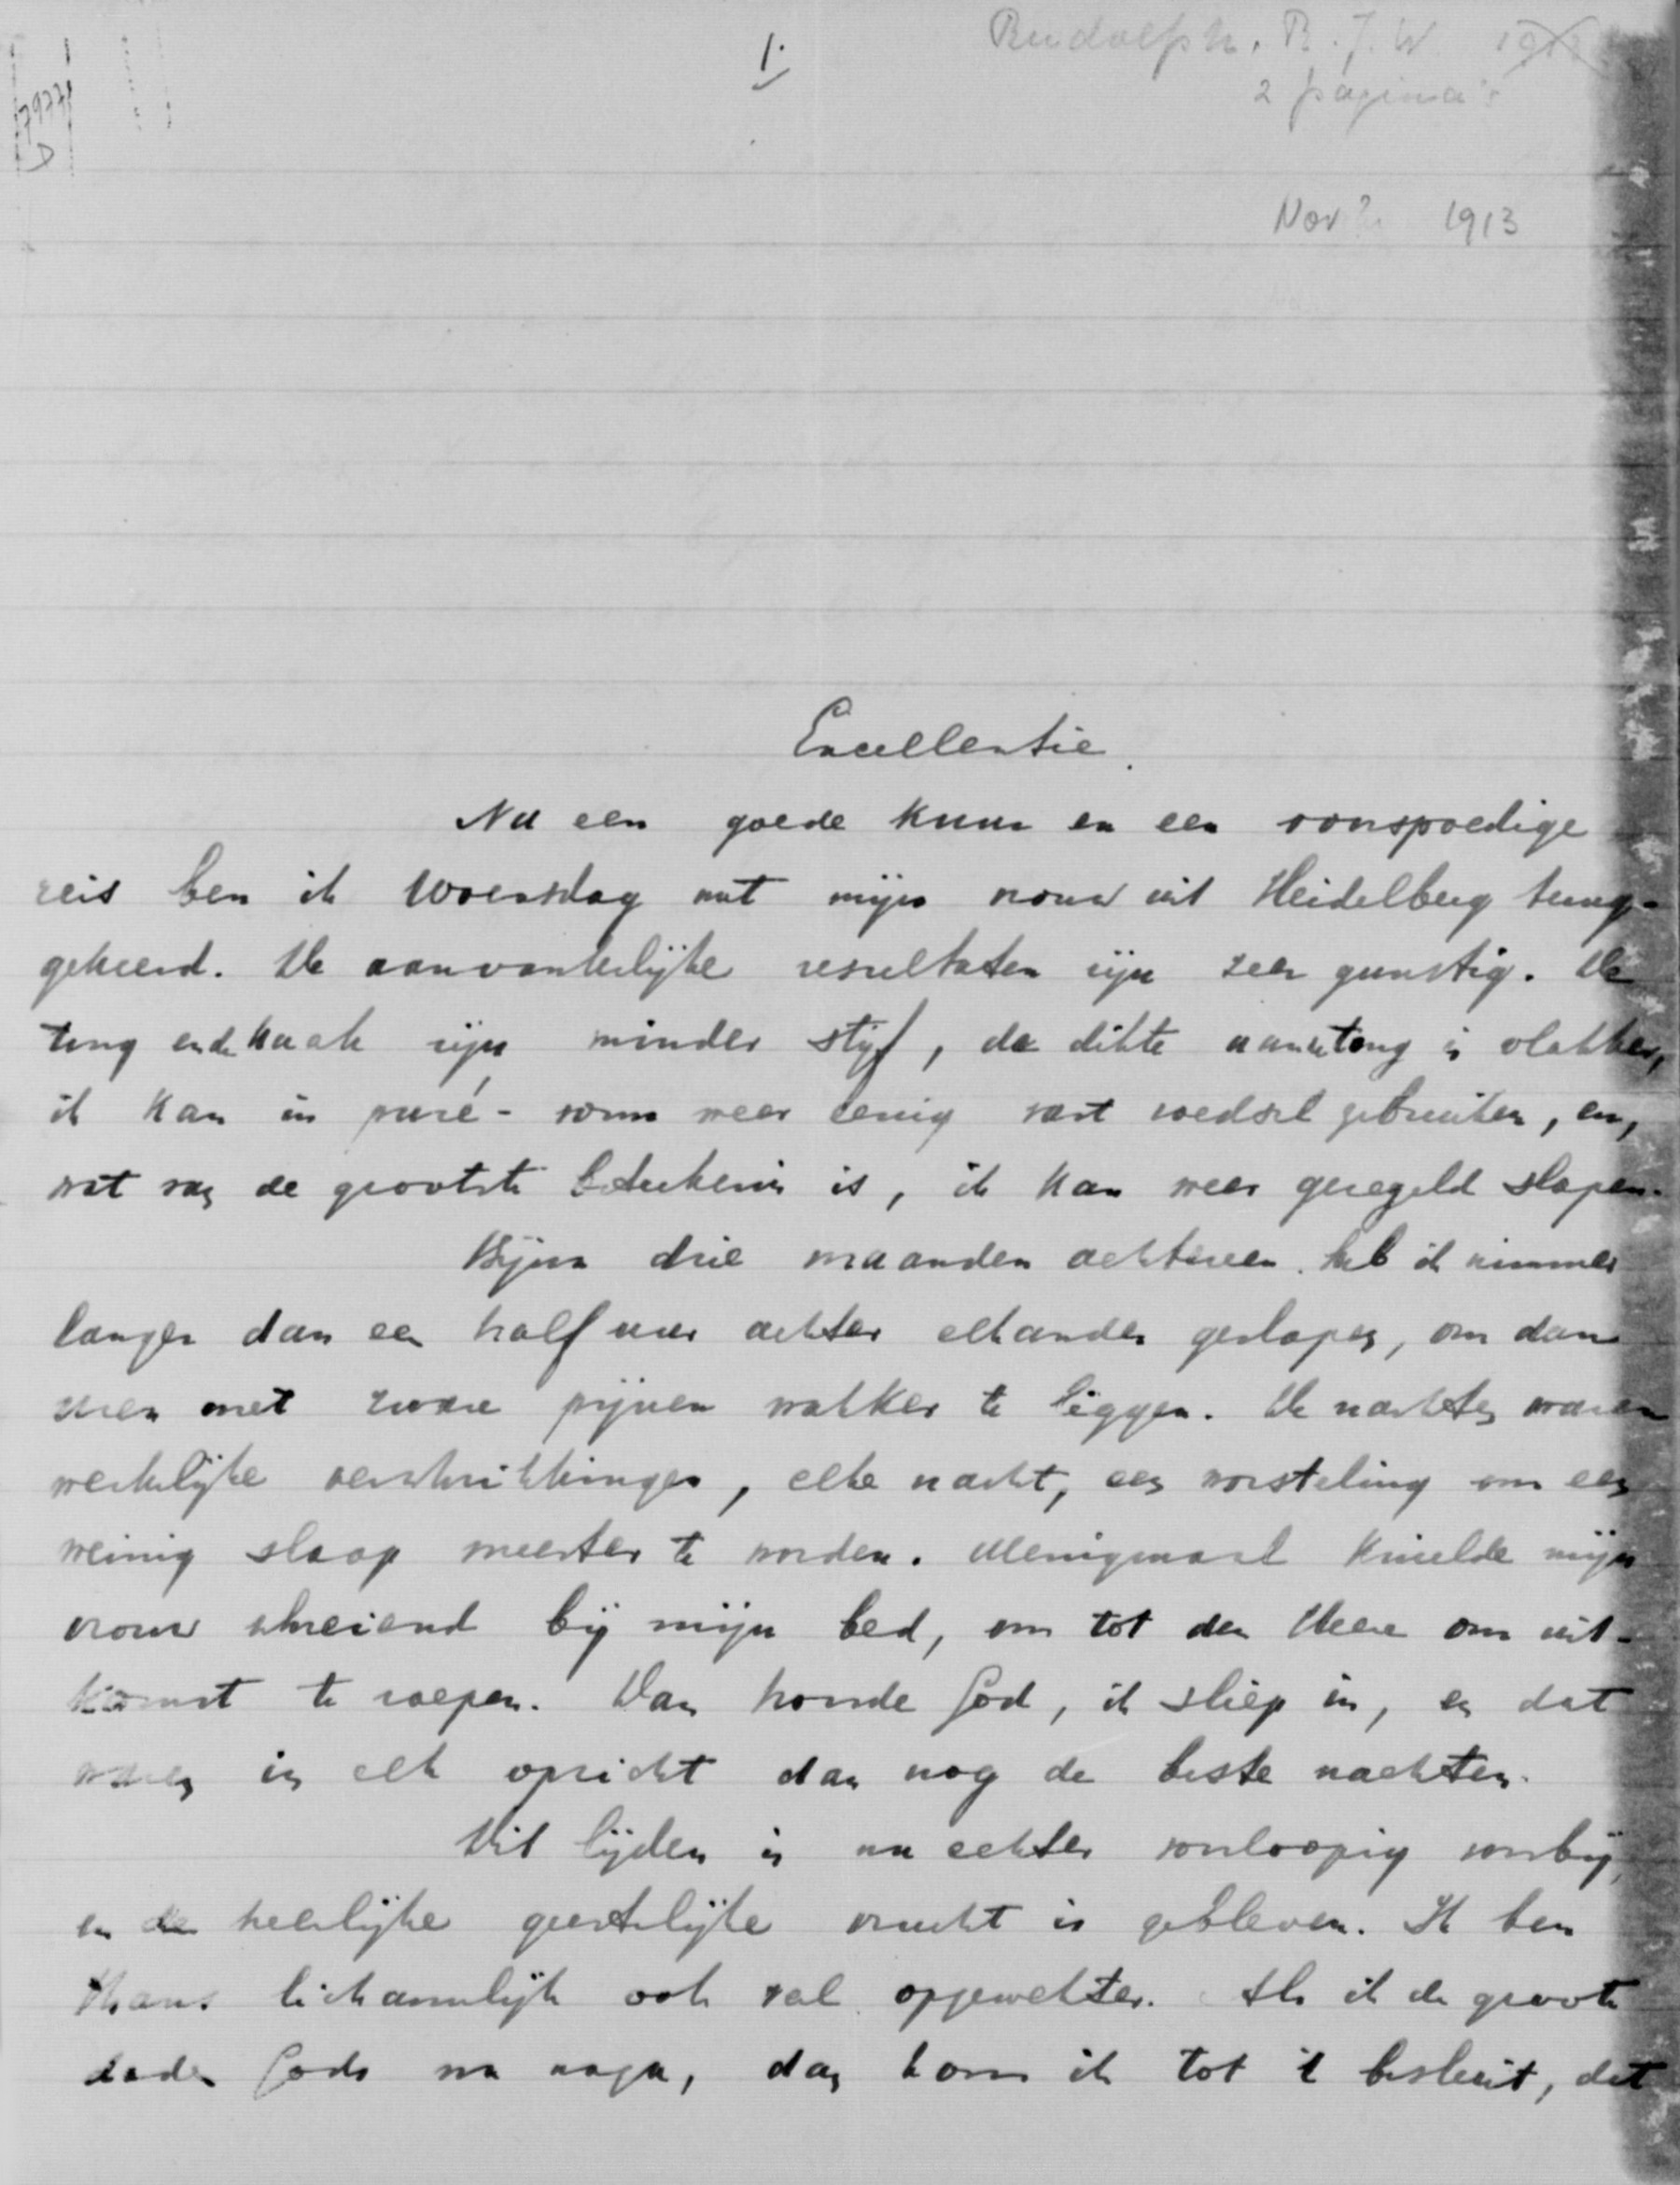 1.
Rudolph. R. J. W. 1913
2 pagina's
7977
D
Nov? 1913
Excellentie.
Na een goede kuur en een voorspoedige
reis ben ik Woensdag met mijn vrouw uit Heidelberg terug-
gekeerd. De aanvankelijke resultaten zijn zeer gunstig. De
tong en de kaak zijn minder stijf, de dikte aan de tong is vlakker,
ik kan in puré-vorm weer eenig vast voedsel gebruiken, en,
wat van de grootste beteekenis is, ik kan weer geregeld slapen.
Bijna drie maanden achtereen heb ik nimmer
langer dan een half uur achter elkander geslapen, om dan
uren met zware pijnen wakker te liggen. De nachten waren
werkelijke verschrikkingen, elke nacht, een worsteling om een
weinig slaap meester te worden. Menigmaal knielde mijn
vrouw schreiend bij mijn bed, om tot den Heere om uit-
komst te roepen. Dan hoorde God, ik sliep in, en dat
waren in elk opzicht dan nog de beste nachten.
Dit lijden is nu echter voorloopig voorbij,
en de heerlijke geestelijke vrucht is gebleven. Ik ben
thans lichamelijk ook veel opgewekter. Als ik de groote
daden Gods nu naga, dan kom ik tot 't besluit, dat